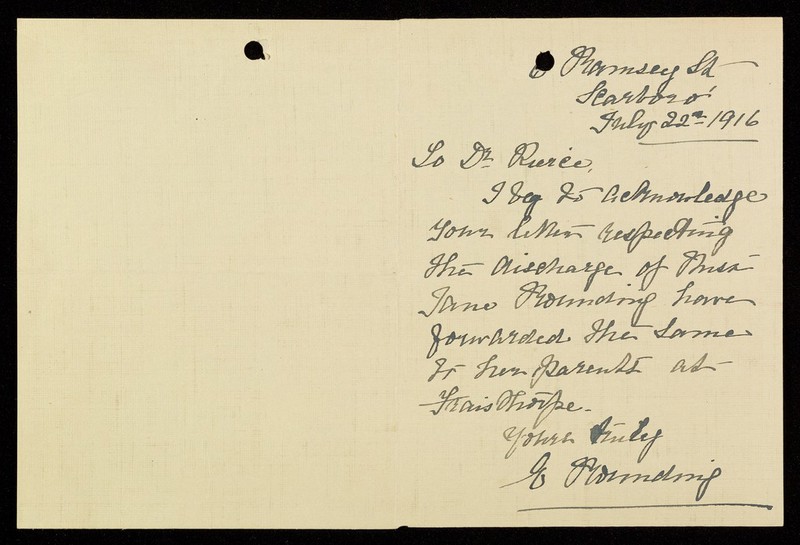 6 Ramsey St
Scarboro'
July 22nd 1916
To Dr Pierce,
I beg to acknowledge
your letter respecting
the discharge of Miss
Jane Rounding have
forwarded the same
to her parents at
Fraisthorpe.
Yours truly
E Rounding